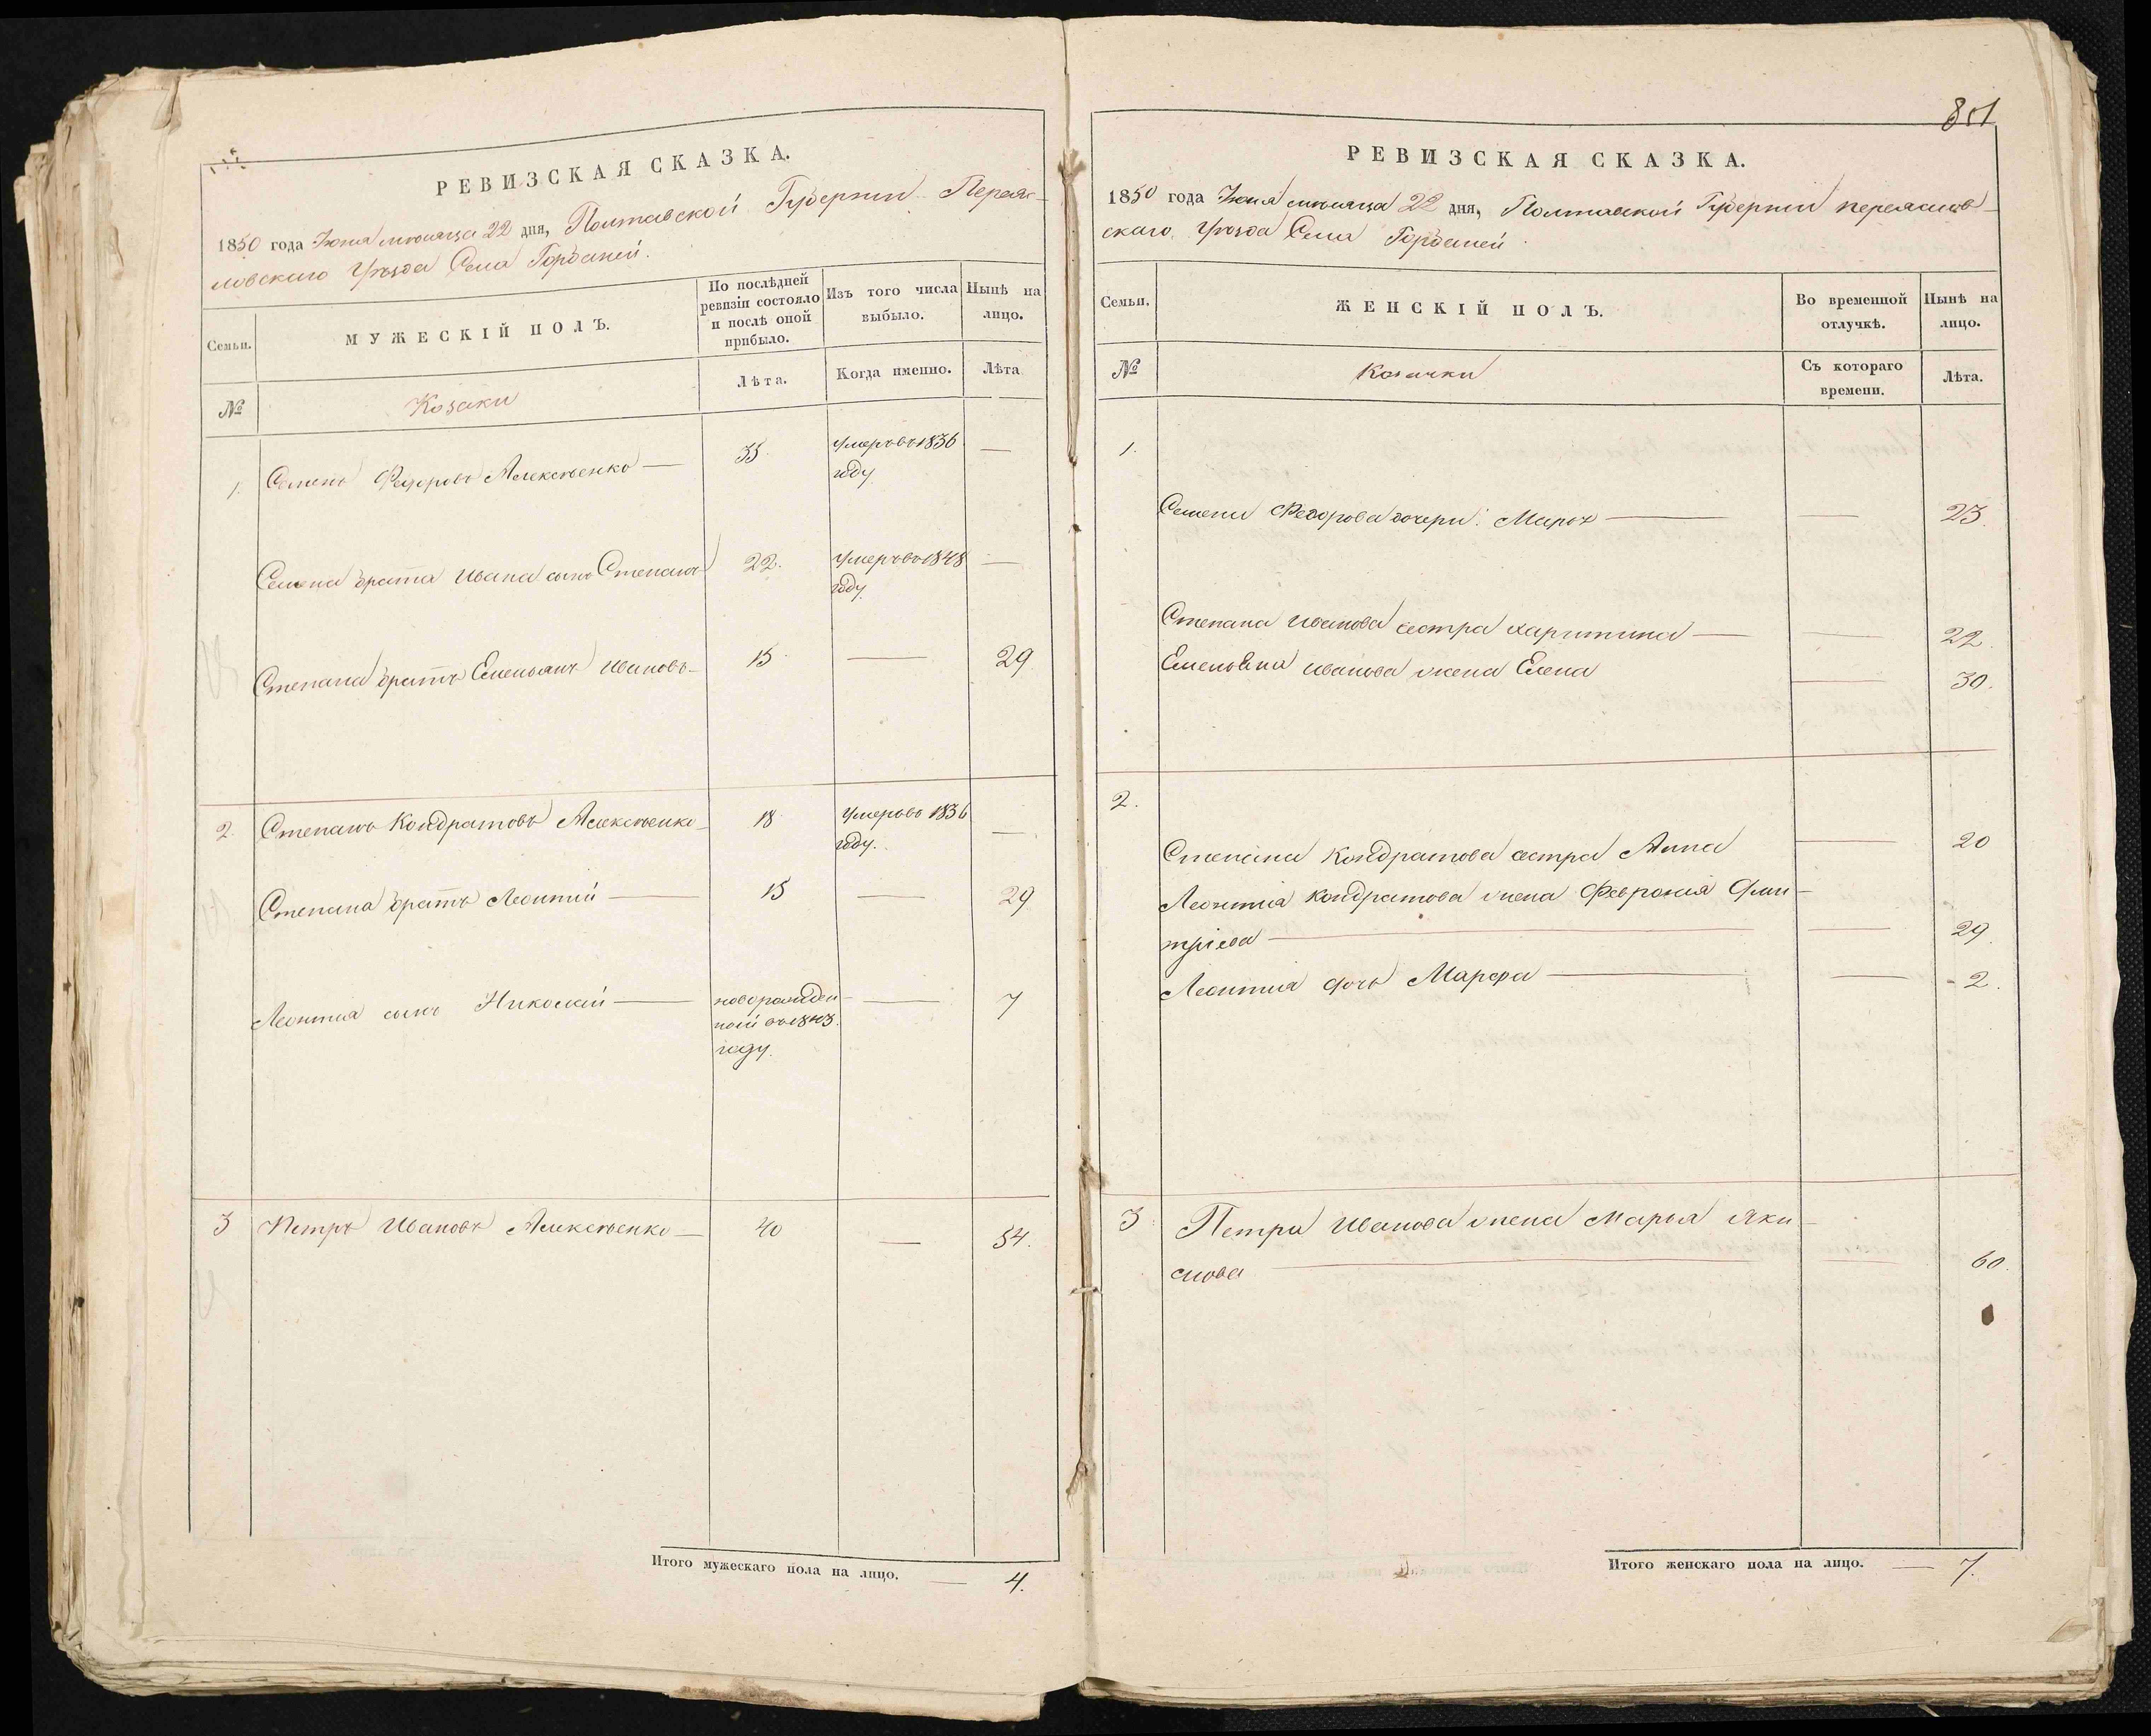 РЕВИЗСКАЯ СКАЗКА.
1850 года Іюня мѣсяца 22 дня, Полтавской Губерніи Переяс-
ловскаго Уѣзда Села Горбаней.
Семьи.
МУЖЕСКІЙ ПОЛЪ.
По послѣдней
ревизіи состояло
и послѣ оной
прибыло.
Изъ того числа
выбыло.
Нынѣ на
лицо.
№
Козаки
Лѣта.
Когда именно.
Лѣта
1. Семенъ Федоровъ Алексѣенко — 35 умеръ въ 1836 —
году
Семена брата Ивана сынъ Степанъ 22. Умеръ въ 1848 —
году
Степана братъ Емельянъ Ивановъ- 15 — 29
2. Степанъ Кондратовъ Алексѣенко- 18 Умеръ въ 1836 —
году.
Степана братъ Леонтій — 15 — 29
Леонтія сынъ Николай — новорожден- — 7
ной въ 1843
году.
3 Петръ Ивановъ Алексѣенко — 40 — 54.
Итого мужескаго пола на лицо. — 4.
851
РЕВИЗСКАЯ СКАЗКА.
1850 года Іюня мѣсяца 22 дня, Полтавской Губерніи переяслов-
скаго Уѣзда Села Горбаней
Семьи.
ЖЕНСКІЙ ПОЛЪ.
Во временной
отлучкѣ.
Нынѣ на
лицо.
№
Козачки
Съ котораго
времени.
Лѣта.
1.
Семена Федорова дочери: — — 23
Степана Иванова сестра харитина — — 22.
Емельяна иванова жена Елена — 30.
2.
Степана Кондратова сестра Анна — 20
Леонтія Кондратова жена Февронія Дми-
тріева — — 29
Леонтія дочь Марфа — — 2.
3. Петра Иванова жена Марья Яки-
мова — — 60.
Итого женскаго пола на лицо. — 7.